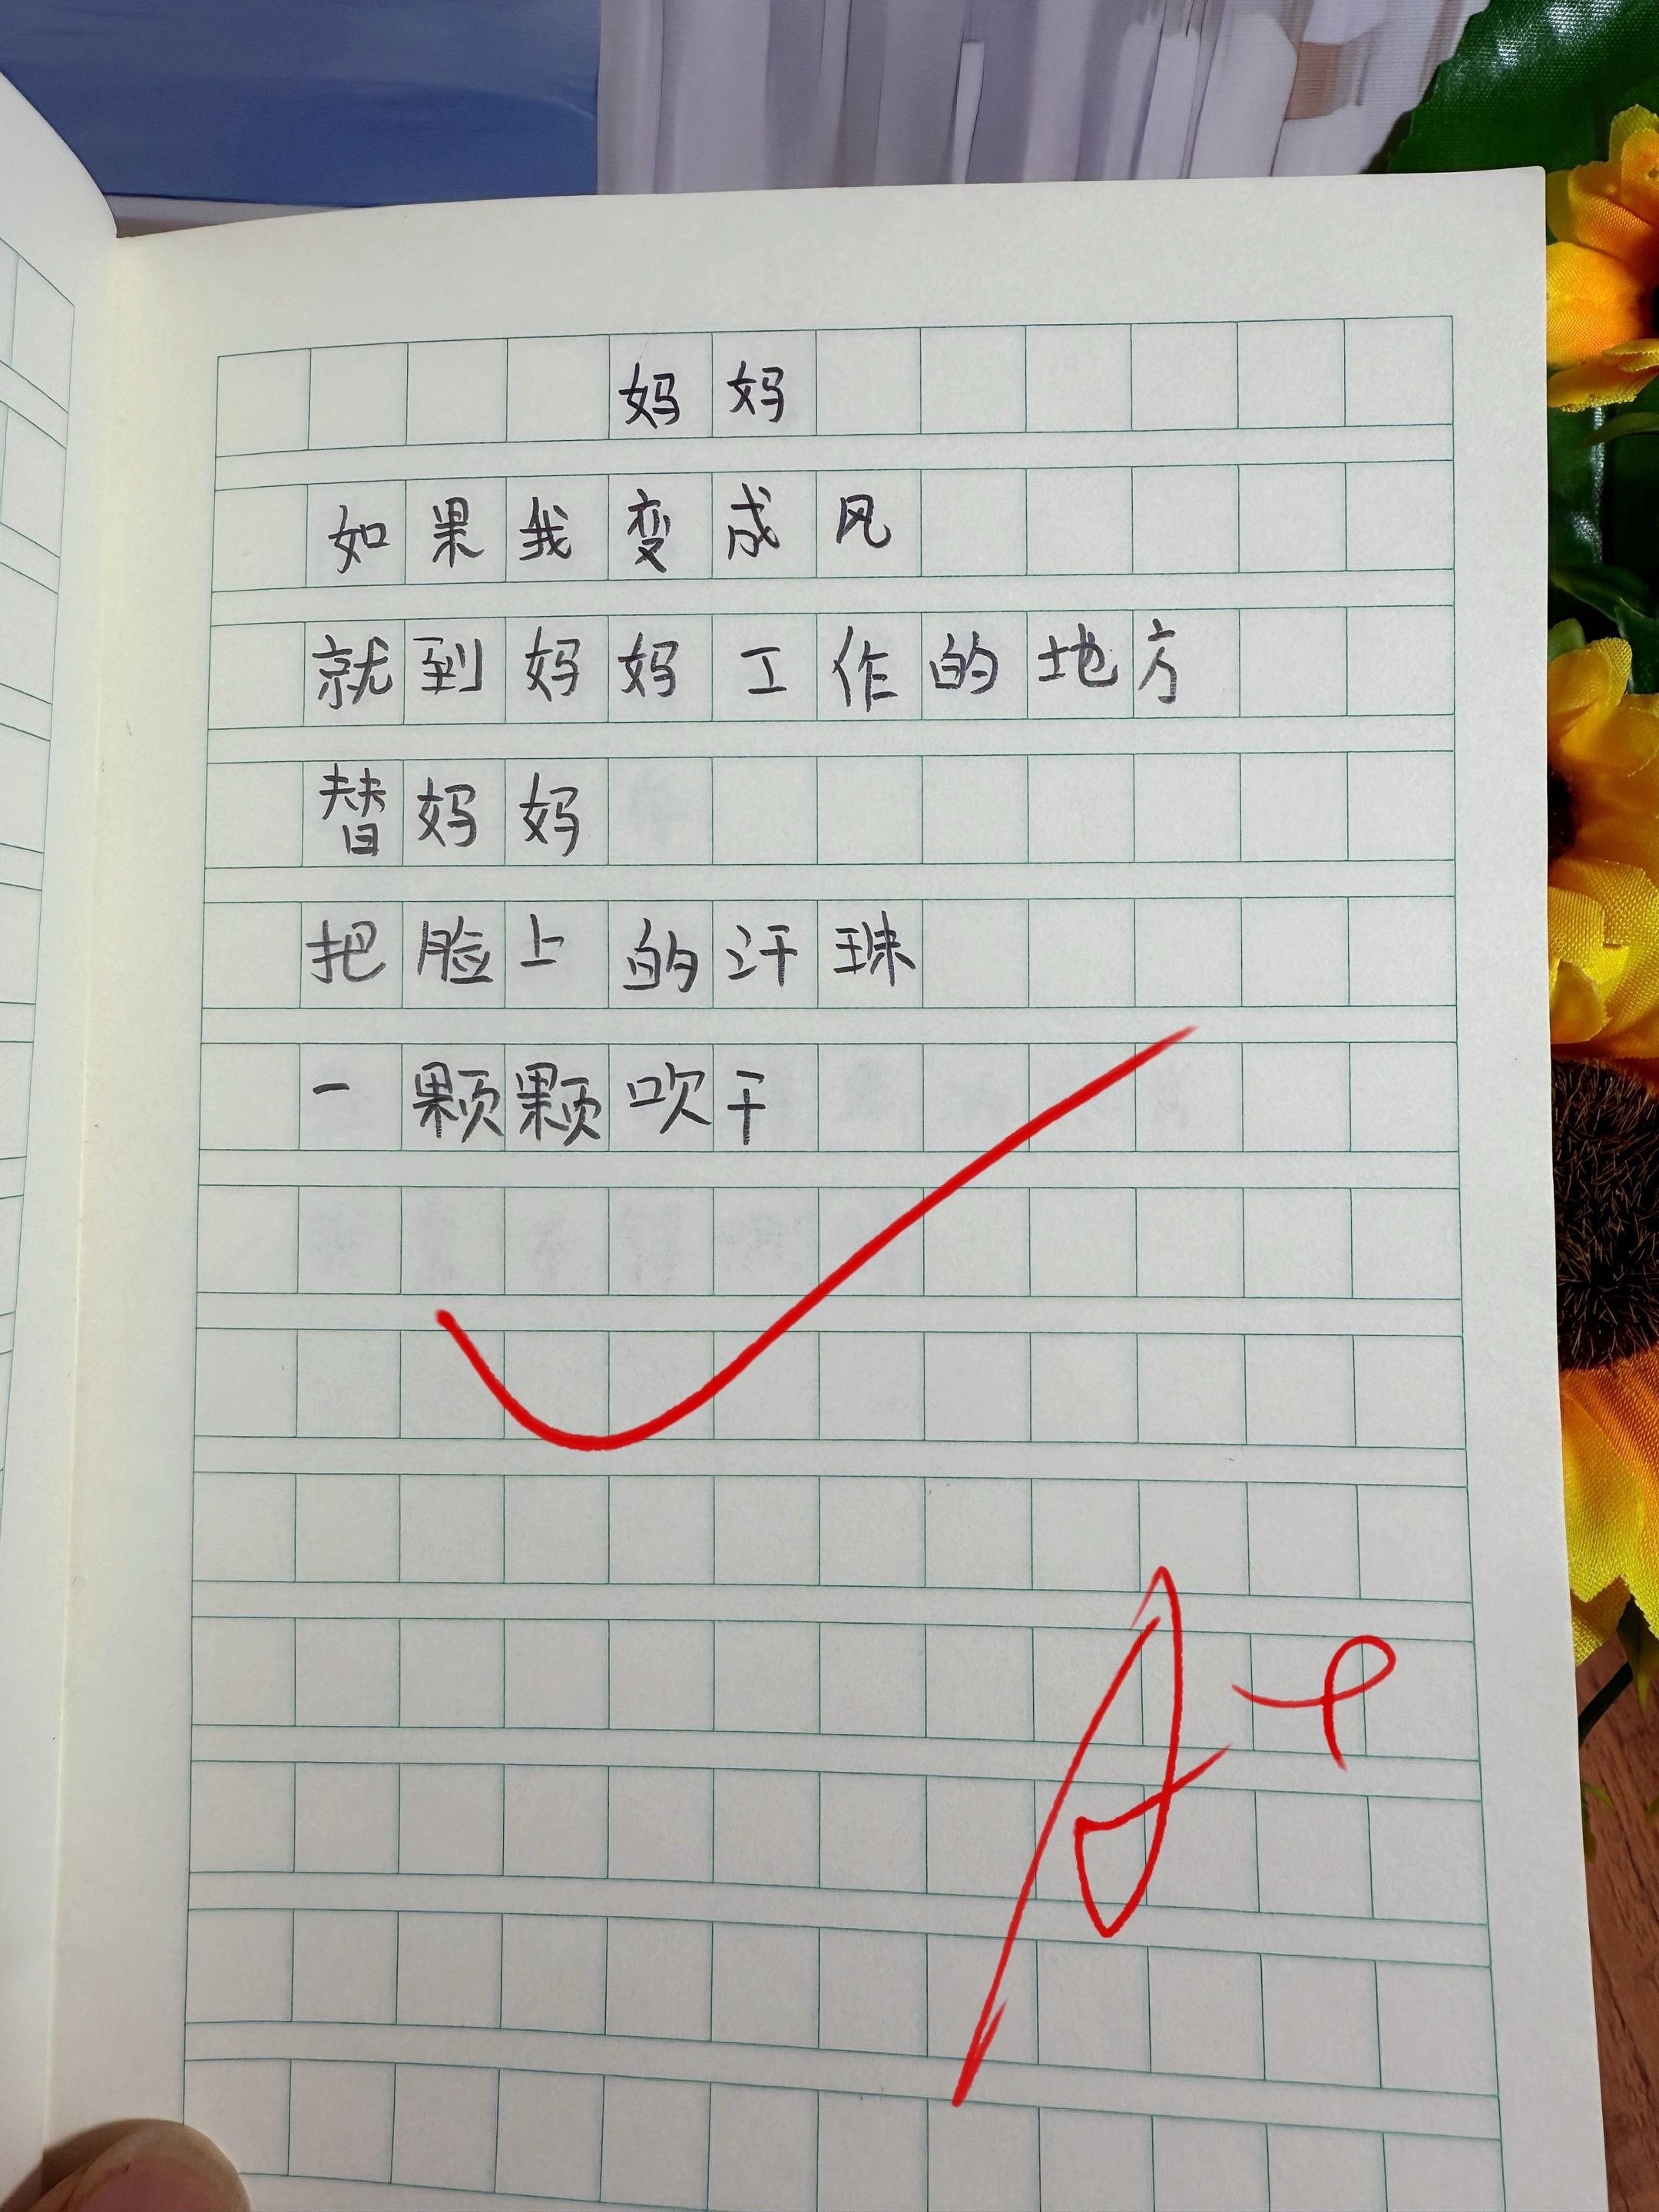 妈妈
如果我变成风
就到妈妈工作的地方
替妈妈
把脸上的汗珠
一颗颗吹干
A+